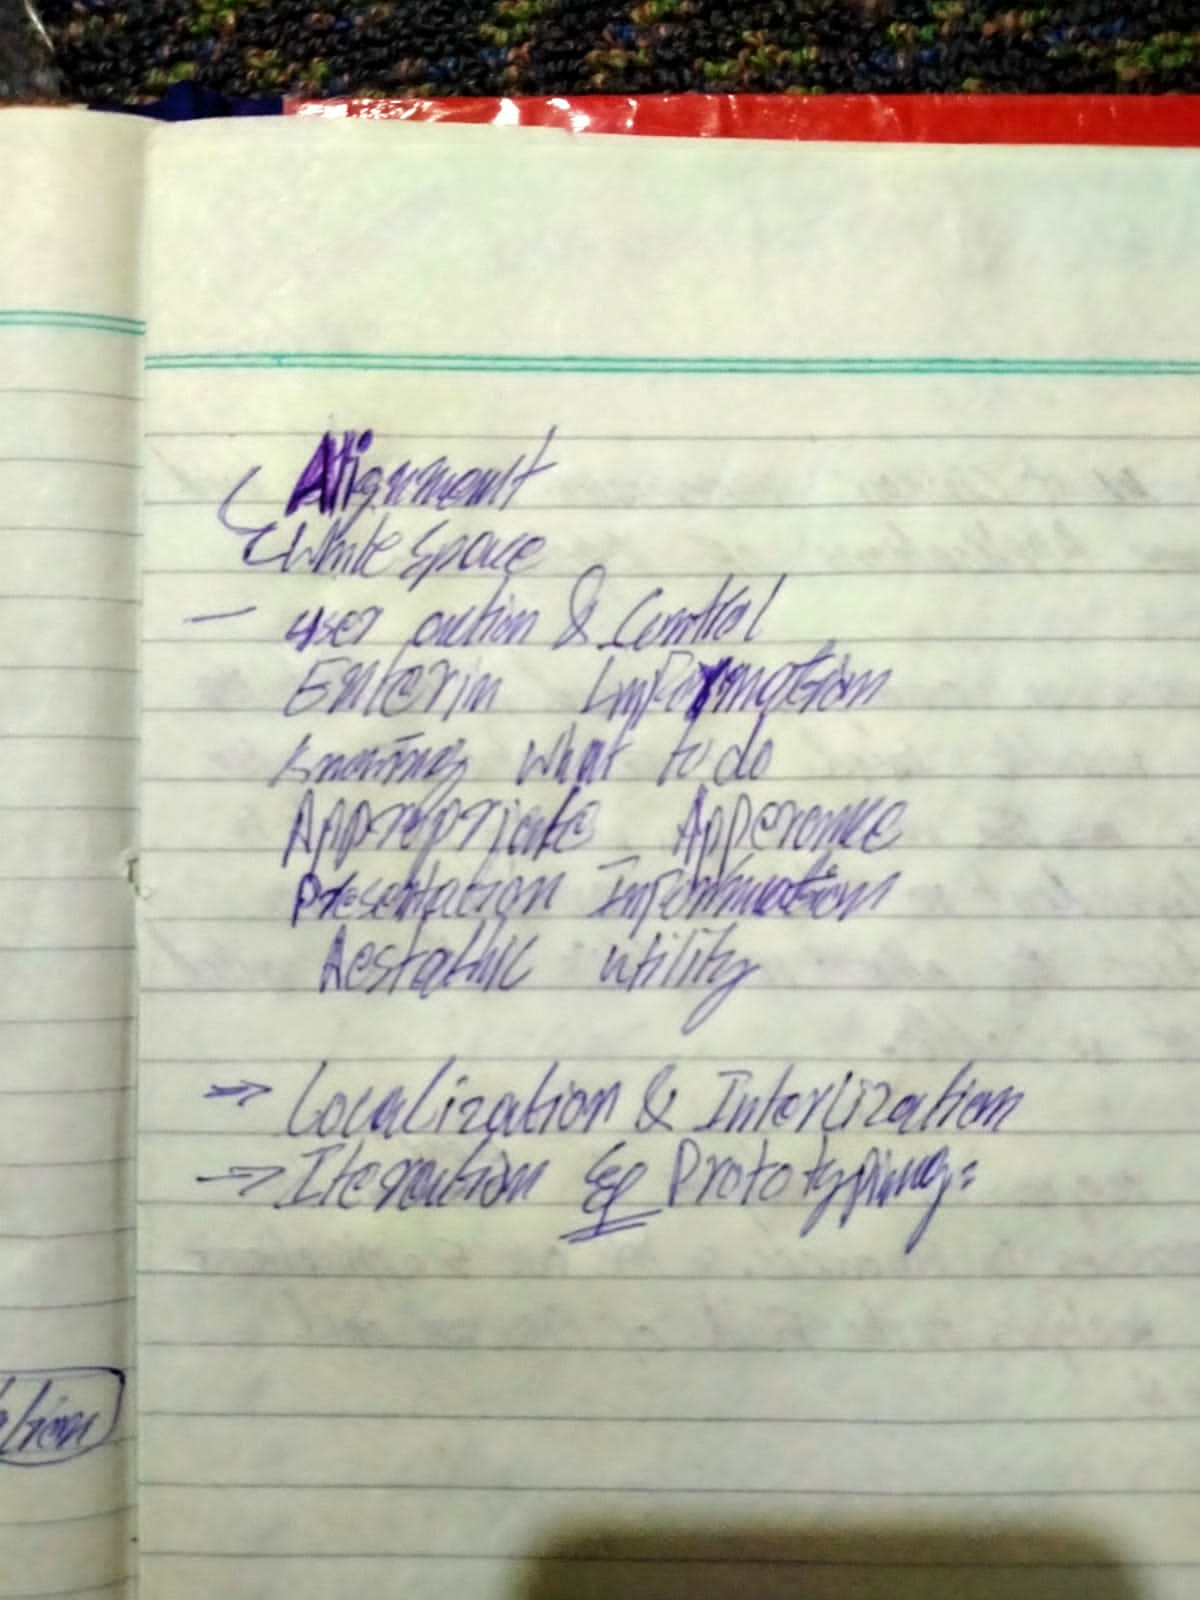 Alignment
White Space
- user action & Control
Enterin Information
knowing what to do
Appropriate Apperance
Presentation Information
Aestathic utility
⇒ Localization & Interlization
→ Iteration & Prototyping: